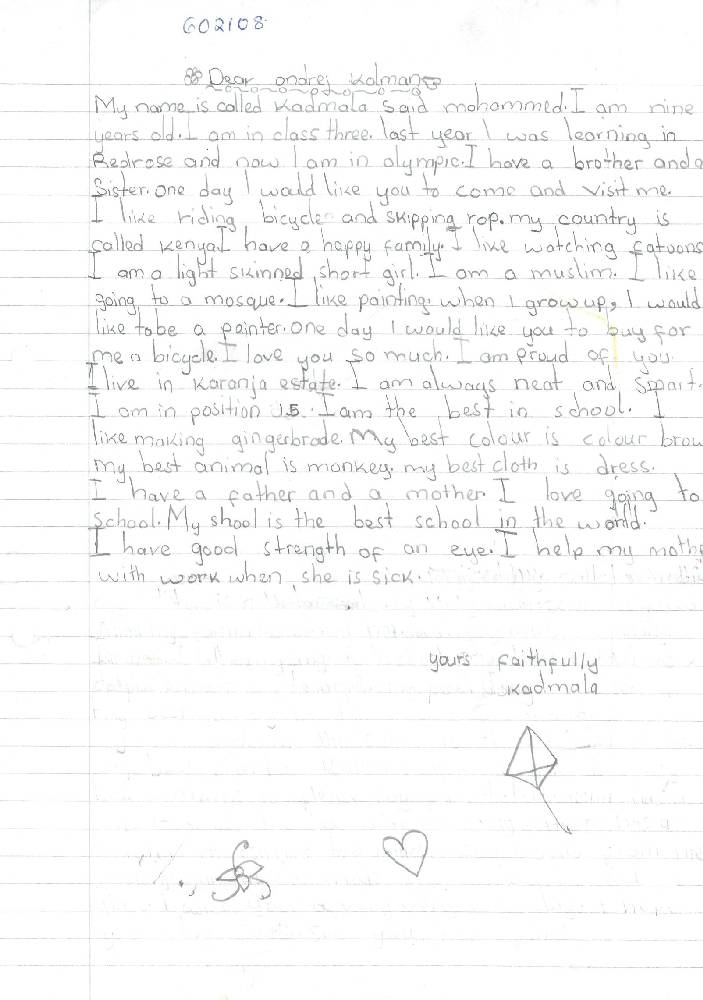 602108
Dear ondrej kolman
My name is called Kadmala Said mohammed. I am nine
years old. I am in class three. last year I was learning in
Redrose and now I am in olympic. I have a brother and a
Sister. one day I would like you to come and visit me.
I like riding bicycle and skipping rop. my country is
called kenya. I have a happy family. I like watching catoons
I am a light skinned short girl. I am a muslim. I like
going to a mosque. I like painting. when I grow up, I would
like tobe a painter. one day I would like you to buy for
me a bicycle. I love you so much. I am proud of you.
I live in karanja estate. I am always neat and Smart.
I am in position 15. I am the best in school. I
like making gingerbrade. My best colour is colour brow
my best animal is monkey. my best cloth is dress.
I have a father and a mother. I love going to
School. My shool is the best school in the world.
I have good strength of an eye. I help my moth
with work when she is sick.
yours faithfully
kadmala